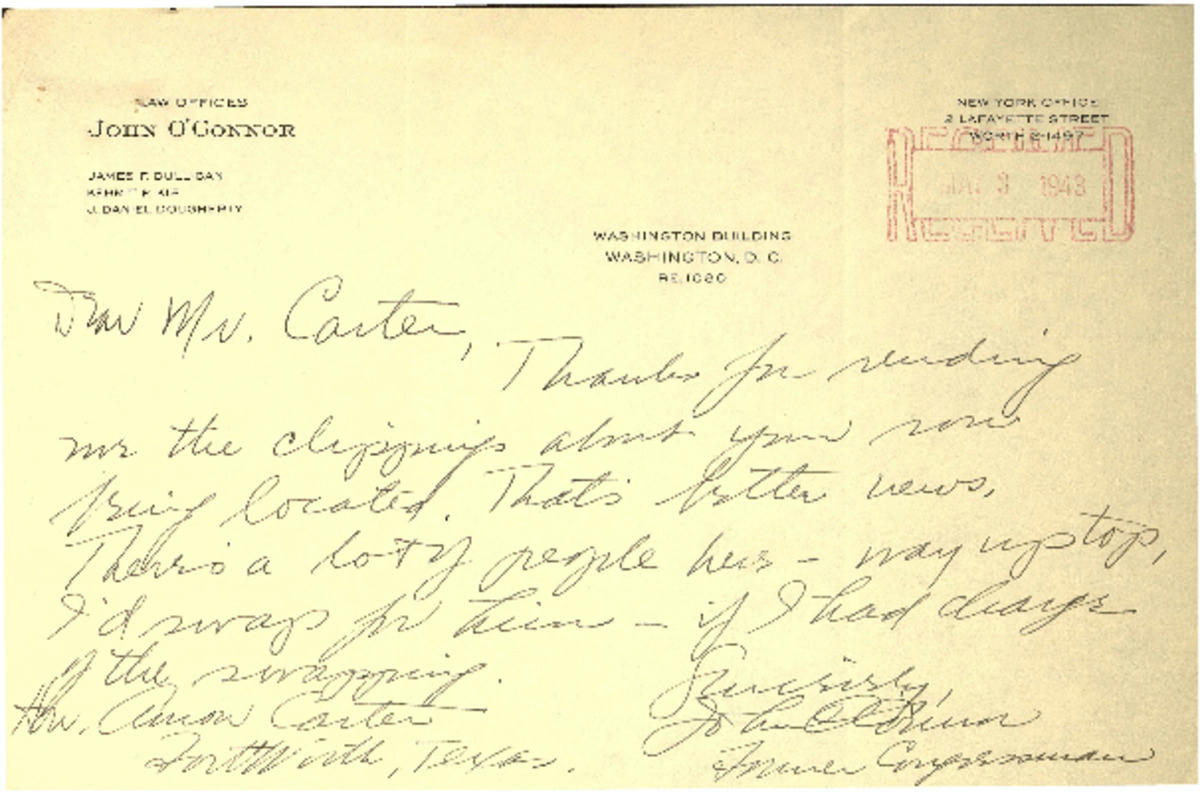 LAW OFFICES
JOHN O'CONNOR
JAMES F.
J. DANIEL DOUGHERTY
NEW YORK OFFICE
2 LAFAYETTE STREET
WORTH 2-1497
RECEIVED
MAY 3 1943
RECEIVED
WASHINGTON BUILDING
WASHINGTON, D. C.
RE. 1020
Dear Mr. Carter,
Thanks for sending
me the clippings about your son
being located. That's better news.
There's a lot of people here – way up top,
I'd swap for him – if I had charge
of the swapping.
Sincerely,
John O'Connor
Former Congressman
Hon. Amon Carter
Fort Worth, Texas.